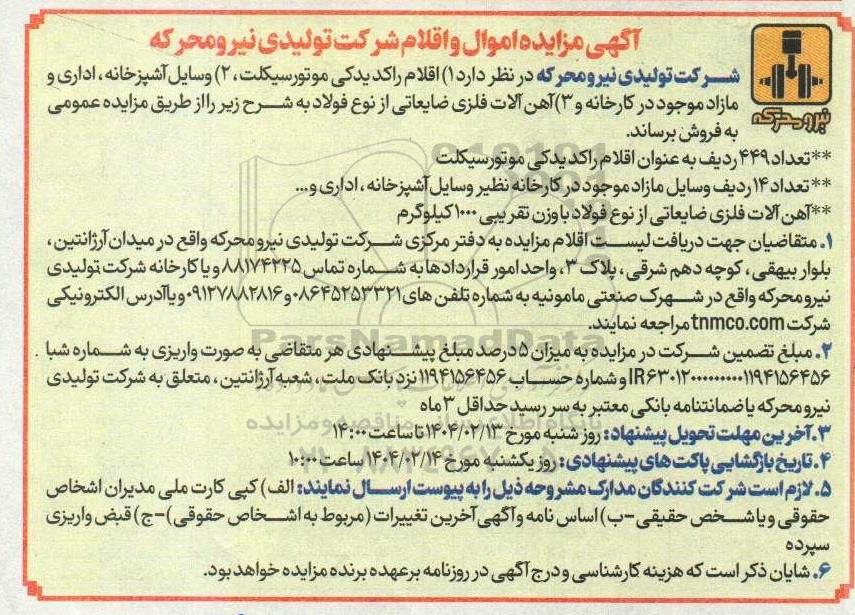 آگهی مزایده اموال و اقلام شرکت تولیدی نیرو محرکه
نیرو محرکه
شرکت تولیدی نیرو محرکه در نظر دارد ۱) اقلام راکد یدکی موتورسیکلت، ۲) وسایل آشپزخانه، اداری و
مازاد موجود در کارخانه و ۳) آهن آلات فلزی ضایعاتی از نوع فولاد به شرح زیر را از طریق مزایده عمومی
به فروش برساند.
**تعداد ۴۴۹ ردیف به عنوان اقلام راکد یدکی موتورسیکلت
**تعداد ۱۴ ردیف وسایل مازاد موجود در کارخانه نظیر وسایل آشپزخانه، اداری و...
**آهن آلات فلزی ضایعاتی از نوع فولاد با وزن تقریبی ۱۰۰۰ کیلوگرم
۱. متقاضیان جهت دریافت لیست اقلام مزایده به دفتر مرکزی شرکت تولیدی نیرو محرکه واقع در میدان آرژانتین،
بلوار بیهقی، کوچه دهم شرقی، پلاک ۳، واحد امور قراردادها به شماره تماس ۸۸۱۷۴۲۲۵ و یا کارخانه شرکت تولیدی
نیرو محرکه واقع در شهرک صنعتی مامونیه به شماره تلفن های ۰۸۶۴۵۲۵۳۳۲۱ و ۰۹۱۲۷۸۸۲۸۱۶ و یا آدرس الکترونیکی
شرکت tnmco.com مراجعه نمایند.
ParsNamadData
۲. مبلغ تضمین شرکت در مزایده به میزان ۵ درصد مبلغ پیشنهادی هر متقاضی به صورت واریزی به شماره شبا
IR۶۳۰۱۲۰۰۰۰۰۰۰۰۰۱۱۹۴۱۵۶۴۵۶ و شماره حساب ۱۱۹۴۱۵۶۴۵۶ نزد بانک ملت، شعبه آرژانتین، متعلق به شرکت تولیدی
نیرو محرکه یا ضمانتنامه بانکی معتبر به سر رسید حداقل ۳ ماه
پایگاه اطلاع رسانی مناقصه و مزایده
۳. آخرین مهلت تحویل پیشنهاد: روز شنبه مورخ ۱۴۰۴/۰۲/۱۳ تا ساعت ۱۴:۰۰
۴. تاریخ بازگشایی پاکت های پیشنهادی: روز یکشنبه مورخ ۱۴۰۴/۰۲/۱۴ ساعت ۱۰:۰۰
۵. لازم است شرکت کنندگان مدارک مشروحه ذیل را به پیوست ارسال نمایند: الف) کپی کارت ملی مدیران اشخاص
حقوقی و یا شخص حقیقی -ب) اساس نامه و آگهی آخرین تغییرات (مربوط به اشخاص حقوقی) -ج) قبض واریزی
سپرده
۶. شایان ذکر است که هزینه کارشناسی و درج آگهی در روزنامه برعهده برنده مزایده خواهد بود.